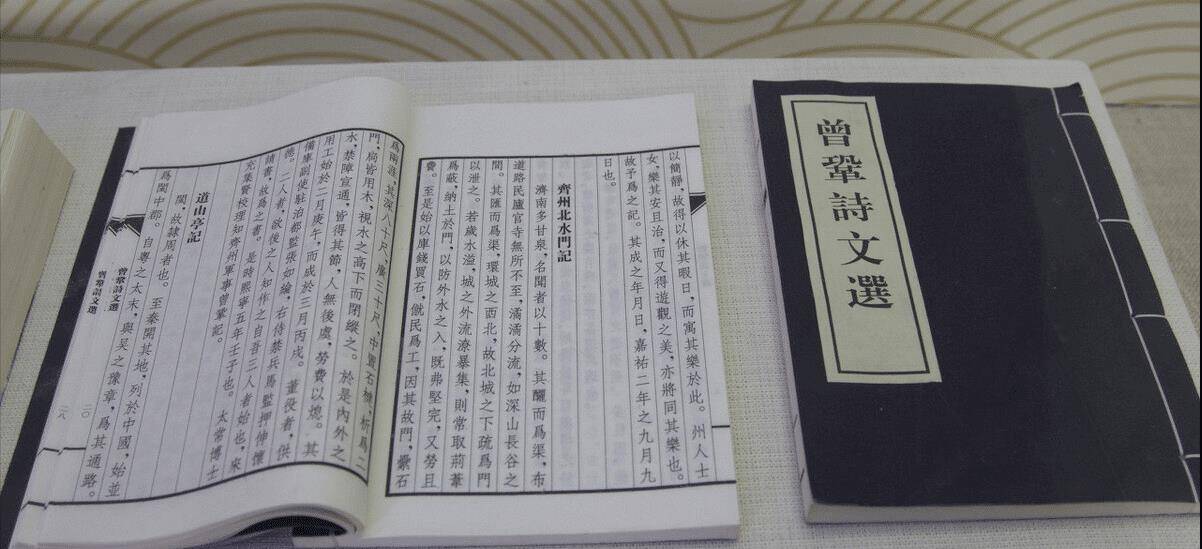 曾鞏詩文選
以簡靜，故得以休其暇日，而寓其樂於此。州人士
女，樂其安且治，而又得遊觀之美，亦將同其樂也。
故予爲之記。其成之年月日，嘉祐二年之九月九
日也。
齊州北水門記
濟南多甘泉，名聞者以十數。其釃而爲渠，布
道路民廬官寺無所不至，潏潏分流，如深山長谷之
間。其匯而爲渠，環城之西北，故北城之下疏爲門
以泄之。若歲水溢，城之外流潦暴集，則常取荊葦
爲蔽，納土於門，以防外水之入，既弗堅完，又勞且
費。至是始以庫錢買石，僦民爲工，因其故門，纍石
爲兩涯，其深八十尺，廣三十尺，中置石楗，析爲二
門，扃皆用木，視水之高下而閉縱之。於是內外之
水，禁障宣通，皆得其節，人無後虞，勞費以熄。其
用工始於二月庚午，而成於三月丙戌。董役者，供
備庫副使駐泊都監張如綸，右侍禁兵馬監押伸懷
德。二人者，欲後之人知作之自吾三人者始也，來
請書，故爲之書。是時熙寧五年壬子也。太常博士
充集賢校理知齊州軍事曾鞏記。
道山亭記
閩，故隸周者也。至秦開其地，列於中國，始並
爲閩中郡。自粵之太末，與吳之豫章，爲其通路。
曾鞏詩文選
二〇
曾鞏詩文選
一八